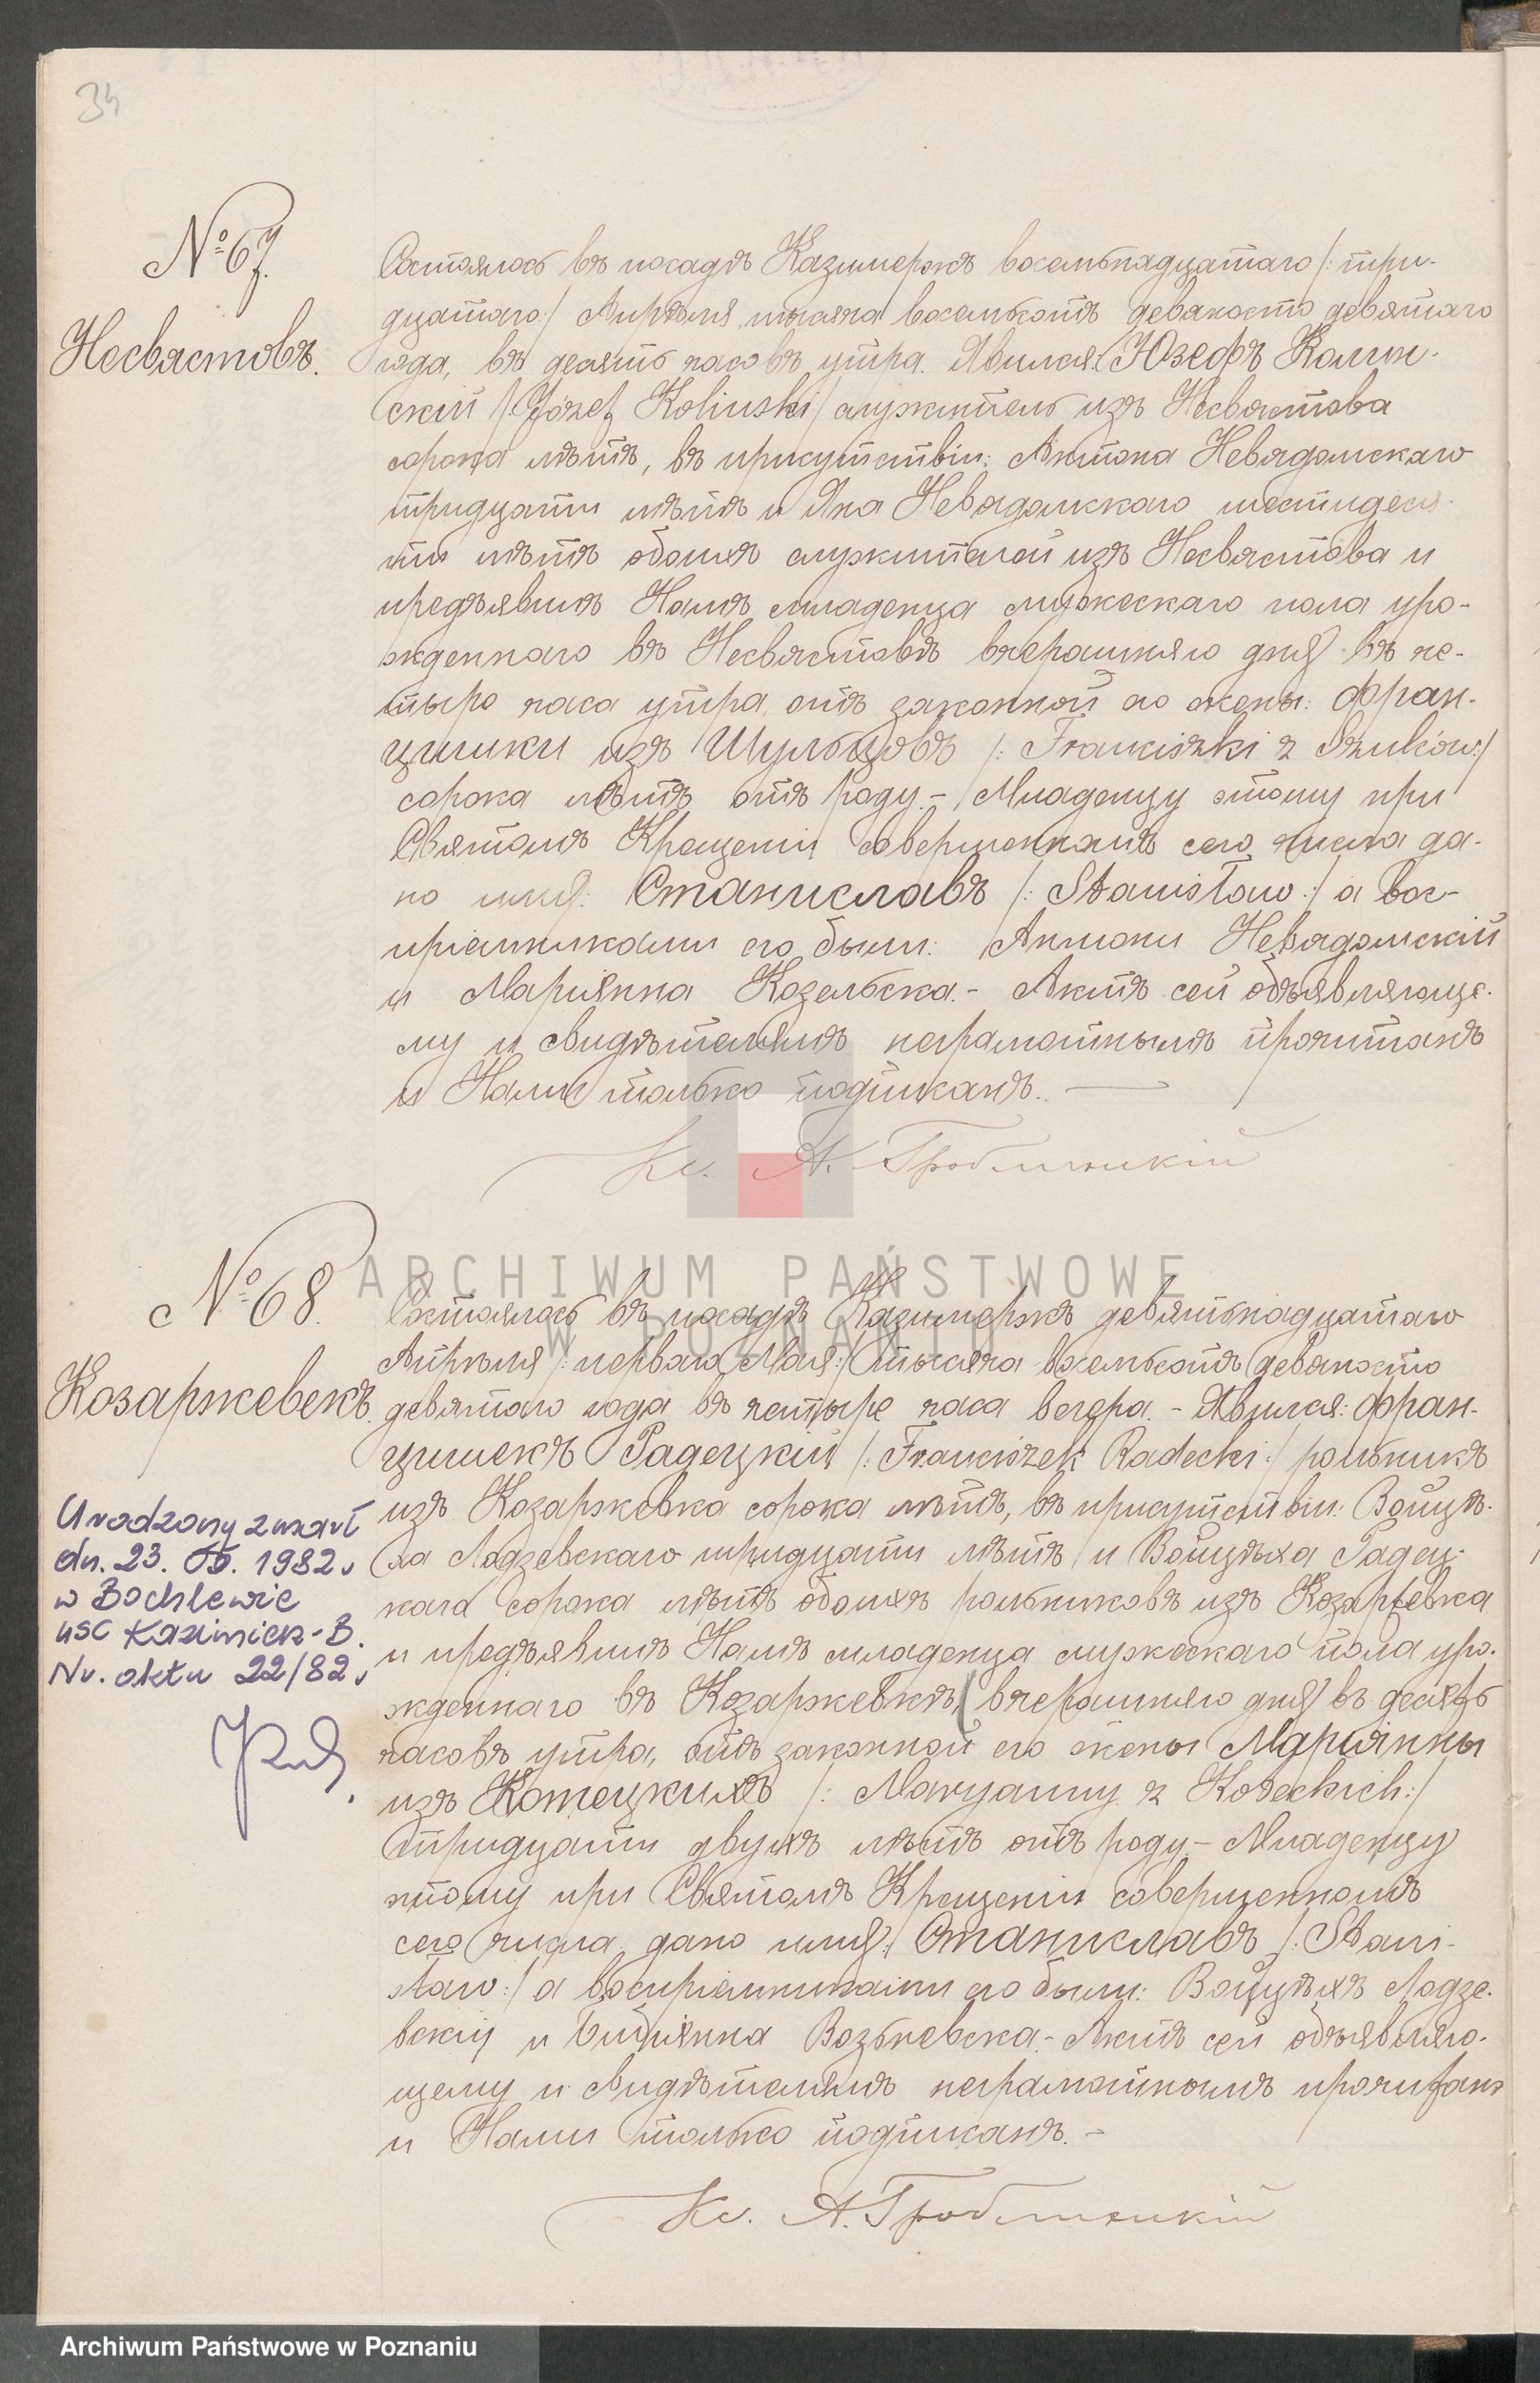 34
№ 67.
Несвястовъ.
Состоялось въ посадѣ Казимержѣ восемьнадцатаго /: три-
дцатаго :/ Апрѣля тысяча восемьсотъ девяносто девятаго
года, въ десять часовъ утра. Явился: Юзефъ Колин-
скій /: Józef Koliński :/ служитель изъ Несвястова
сорока лѣтъ, въ присутствіи: Антона Невядомскаго
тридцати лѣтъ и Яна Невядомскаго шестидеся-
ти лѣтъ обоихъ служителей изъ Несвястова и
предъявилъ Намъ младенца мужескаго пола уро-
жденнаго въ Несвястовѣ вчерашняго дня въ че-
тыре часа утра, отъ законной его жены: Фран-
цишки изъ Шульцовъ /: Franciszki z Szulców :/
сорока лѣтъ отъ роду. – Младенцу этому при
Святомъ Крещеніи совершенномъ сего числа да-
но имя: Станиславъ /: Stanisław :/ а вос-
пріемниками его были: Антони Невядомскій
и Маріянна Козельска. – Актъ сей объявляюще-
му и свидѣтелямъ неграмотнымъ прочитанъ
и Нами только подписанъ. —
Кс. А. Гробличкій
№ 68.
Козаржевекъ.
Состоялось въ посадѣ Казимержѣ девятьнадцатаго
Апрѣля /: перваго Мая :/ тысяча восемьсотъ девяносто
девятаго года въ четыре часа вечера. – Явился: Фран-
цишекъ Радецкій /: Franciszek Radecki :/ рольникъ
изъ Козаржевка сорока лѣтъ, въ присутствіи: Войцѣ-
ха Лодзевскаго тридцати лѣтъ и Войцѣха Радец-
каго сорока лѣтъ обоихъ рольниковъ изъ Козаржевка
и предъявилъ Намъ младенца мужескаго пола уро-
жденнаго въ Козаржевкѣ вчерашняго дня въ десять
часовъ утра, отъ законной его жены Маріянны
изъ Котецкихъ /: Maryanny z Koteckich :/
тридцати двухъ лѣтъ отъ роду – Младенцу
этому при Святомъ Крещеніи совершенномъ
сего числа дано имя: Станиславъ /: Stani-
sław :/ а воспріемниками его были: Войцѣхъ Лодзе-
вскій и Возьневска. – Актъ сей объявляю-
щему и свидѣтелямъ неграмотнымъ прочитанъ
и Нами только подписанъ. –
Кс. А. Гробличкій
Urodzony zmarł
dn. 23. 05. 1982 r
w Bochlewie
USC Kazimierz-B.
Nr. aktu 22/82 r
ARCHIWUM PAŃSTWOWE
W POZNANIU
Archiwum Państwowe w Poznaniu